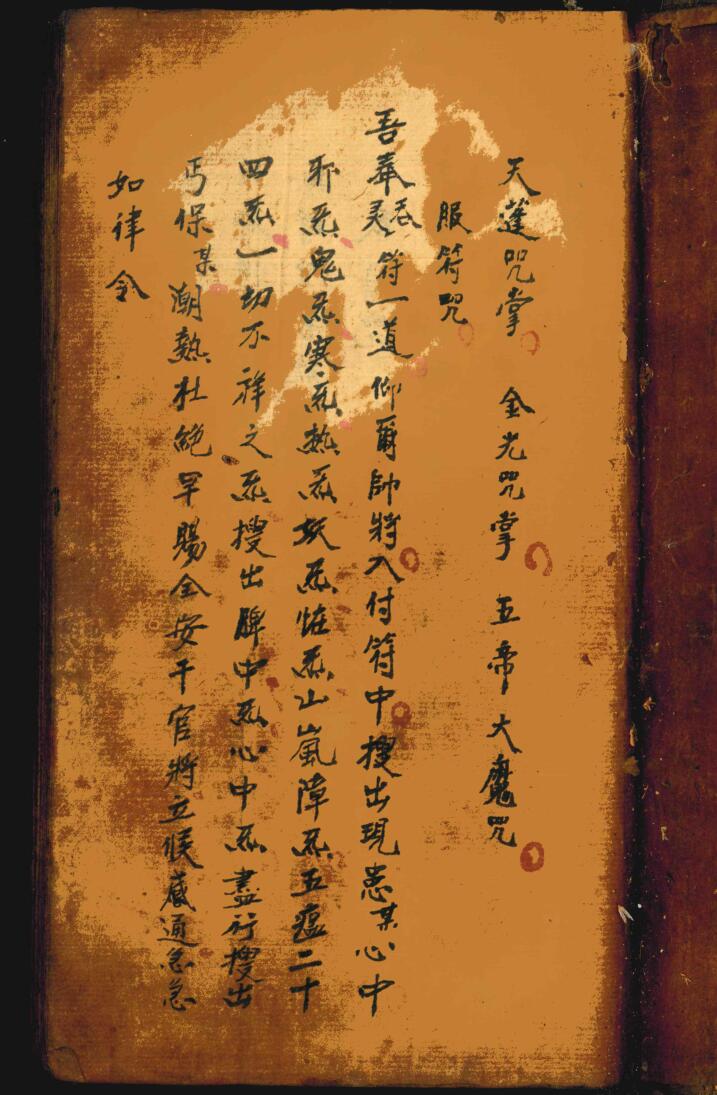 天蓬咒掌 金光咒掌 五帝大魔咒
服符咒
吾奉灵符一道仰爾帥將入付符中搜出現患某心中
邪炁鬼炁寒炁热炁妖炁怪炁山嵐障炁五瘟二十
四炁一切不祥之炁搜出脾中炁心中炁盡行搜出
丐保某潮熱杜絶早賜全安干官將立候感通急急
如律令